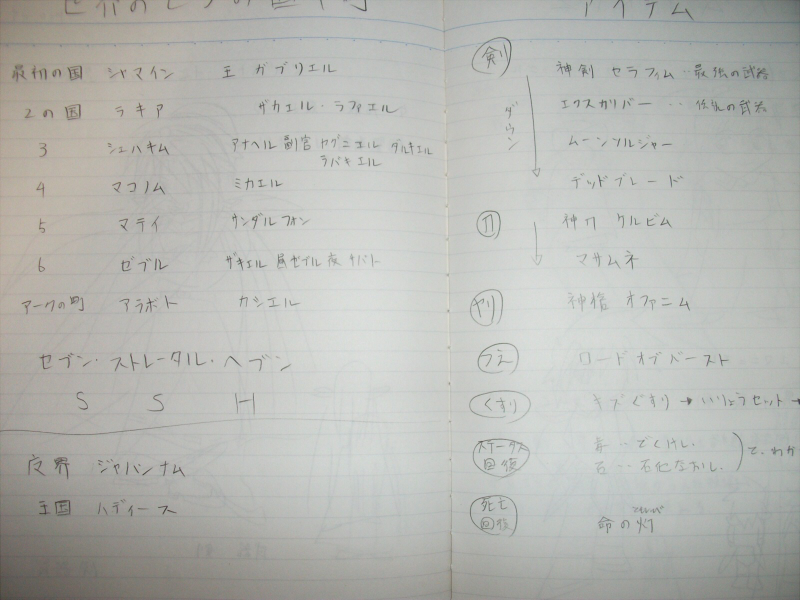 最初の国 シャマイン 王 ガブリエル
2の国 ラキア ザカエル・ラファエル
3 シェハキム アナヘル 副官 カグニエル ダルキエル
ラバキエル
4 マコノム ミカエル
5 マテイ サンダルフォン
6 ゼブル ザキエル 昼ゼブル 夜 サバト
アークの町 アラボト カシエル
セブン・ストレータル・ヘブン
S S H
反界 ジャハンナム
王国 ハディース
アイテム
剣 神剣 セラフィム‥最強の武器
ダウン エクスカリバー ‥ 伝说の武器
ムーンソルジャー
デッドブレード
刀 神刀 ケルビム
マサムネ
ヤリ 神槍 オファニム
つえ ロードオブバースト
くすり キズぐすり→いりょうセット→
ステータス回復 毒‥どくけし.
石‥石化なおし. で、わか
死亡回復 命の灯